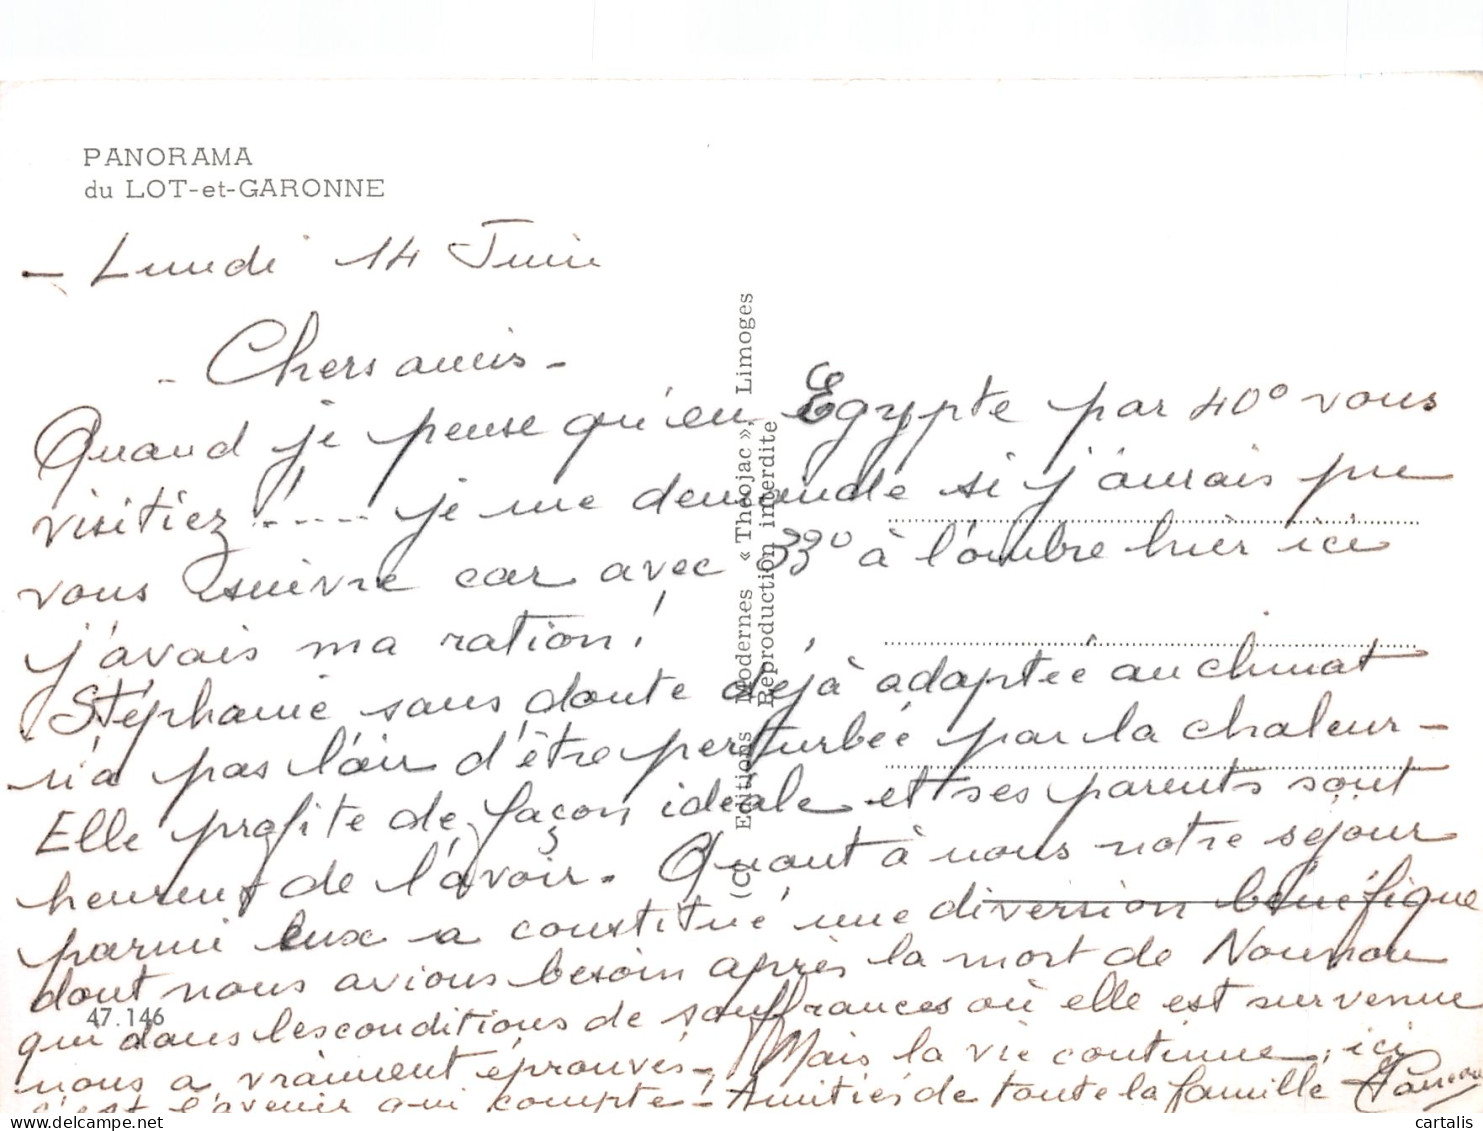 PANORAMA
du LOT-et-GARONNE
- Lundi 14 Juin
- Chers amis -
Quand je pense qu'en Egypte par 40° vous
visitiez ! ---- je me demande si j'aurais pu
vous suivre car avec 33° à l'ombre hier ici
j'avais ma ration !
Stéphanie sans doute déjà adaptée au climat
n'a pas l'air d'être perturbée par la chaleur -
Elle profite de façon idéale et ses parents sont
heureux de l'avoir. Quant à nous notre séjour
parmi eux a constitué une diversion bénéfique
dont nous avions besoin après la mort de
qui dans les conditions de souffrances où elle est survenue
nous a vraiment éprouvés - Mais la vie continue, ici
c'est l'avenir qui compte - Amitiés de toute la famille
47.146
Editions Modernes « Théojac », Limoges
Reproduction interdite
cartalis